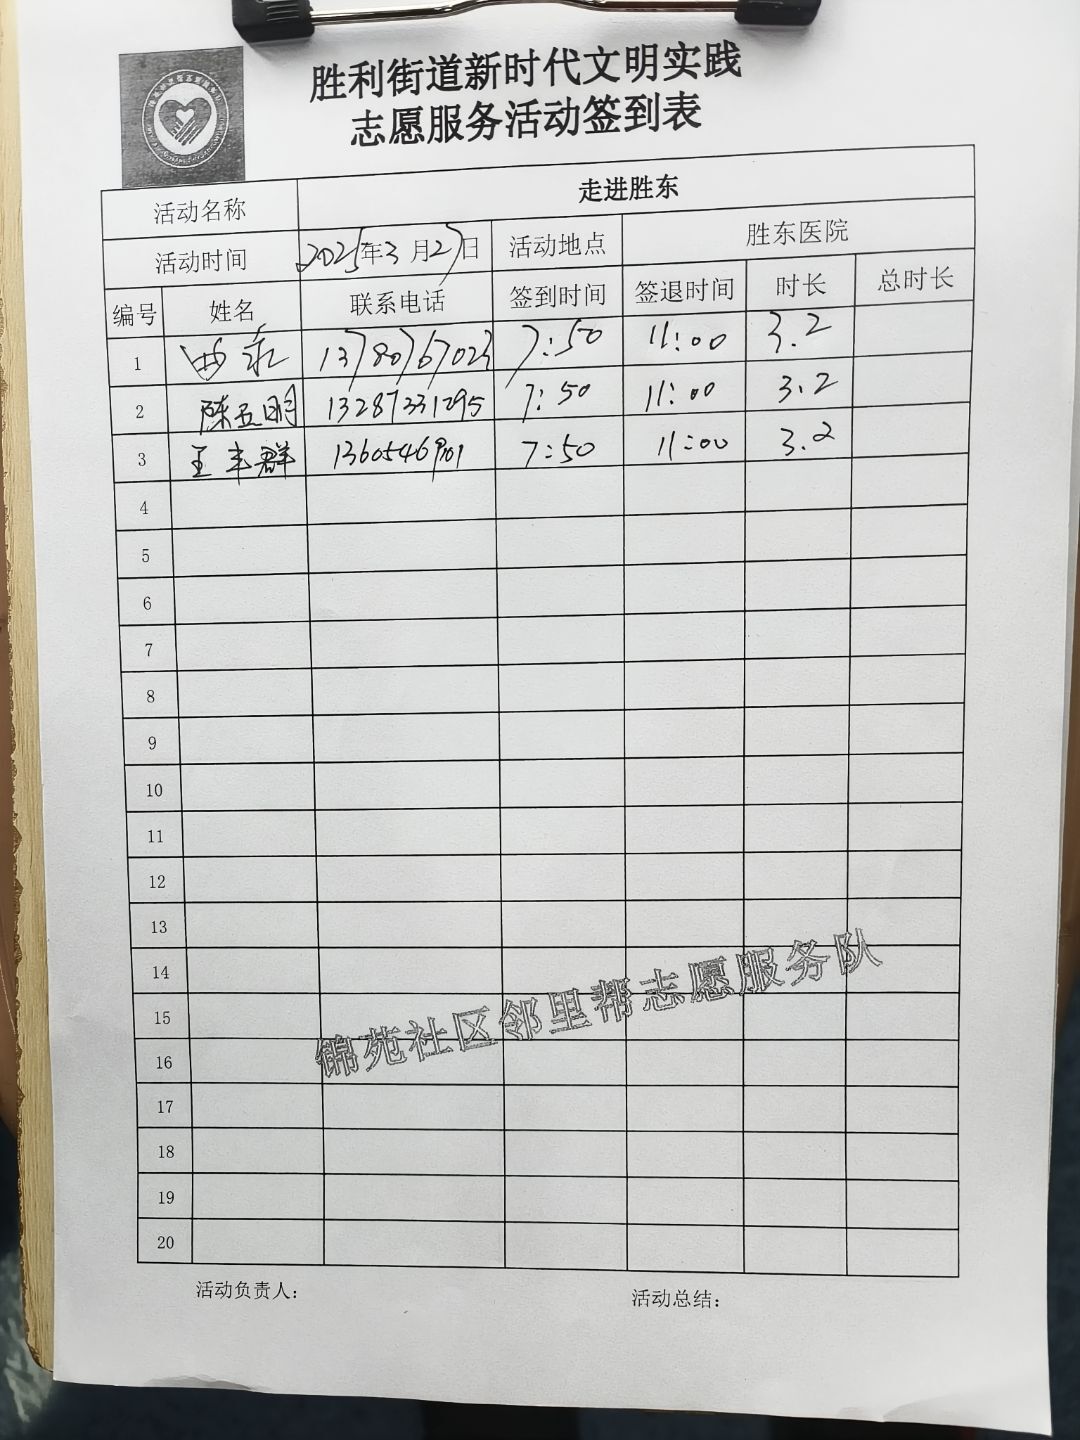 胜利街道新时代文明实践
志愿服务活动签到表
活动名称 走进胜东
活动时间 2025年3月27日 活动地点 胜东医院
编号 姓名 联系电话 签到时间 签退时间 时长 总时长
1 13780767023 7:50 11:00 3.2
2 陈五明 13287331295 7:50 11:00 3.2
3 王丰群 7:50 11:00 3.2
4
5
6
7
8
9
10
11
12
13
14
15
16
17
18
19
20
锦苑社区邻里帮志愿服务队
活动负责人： 活动总结：